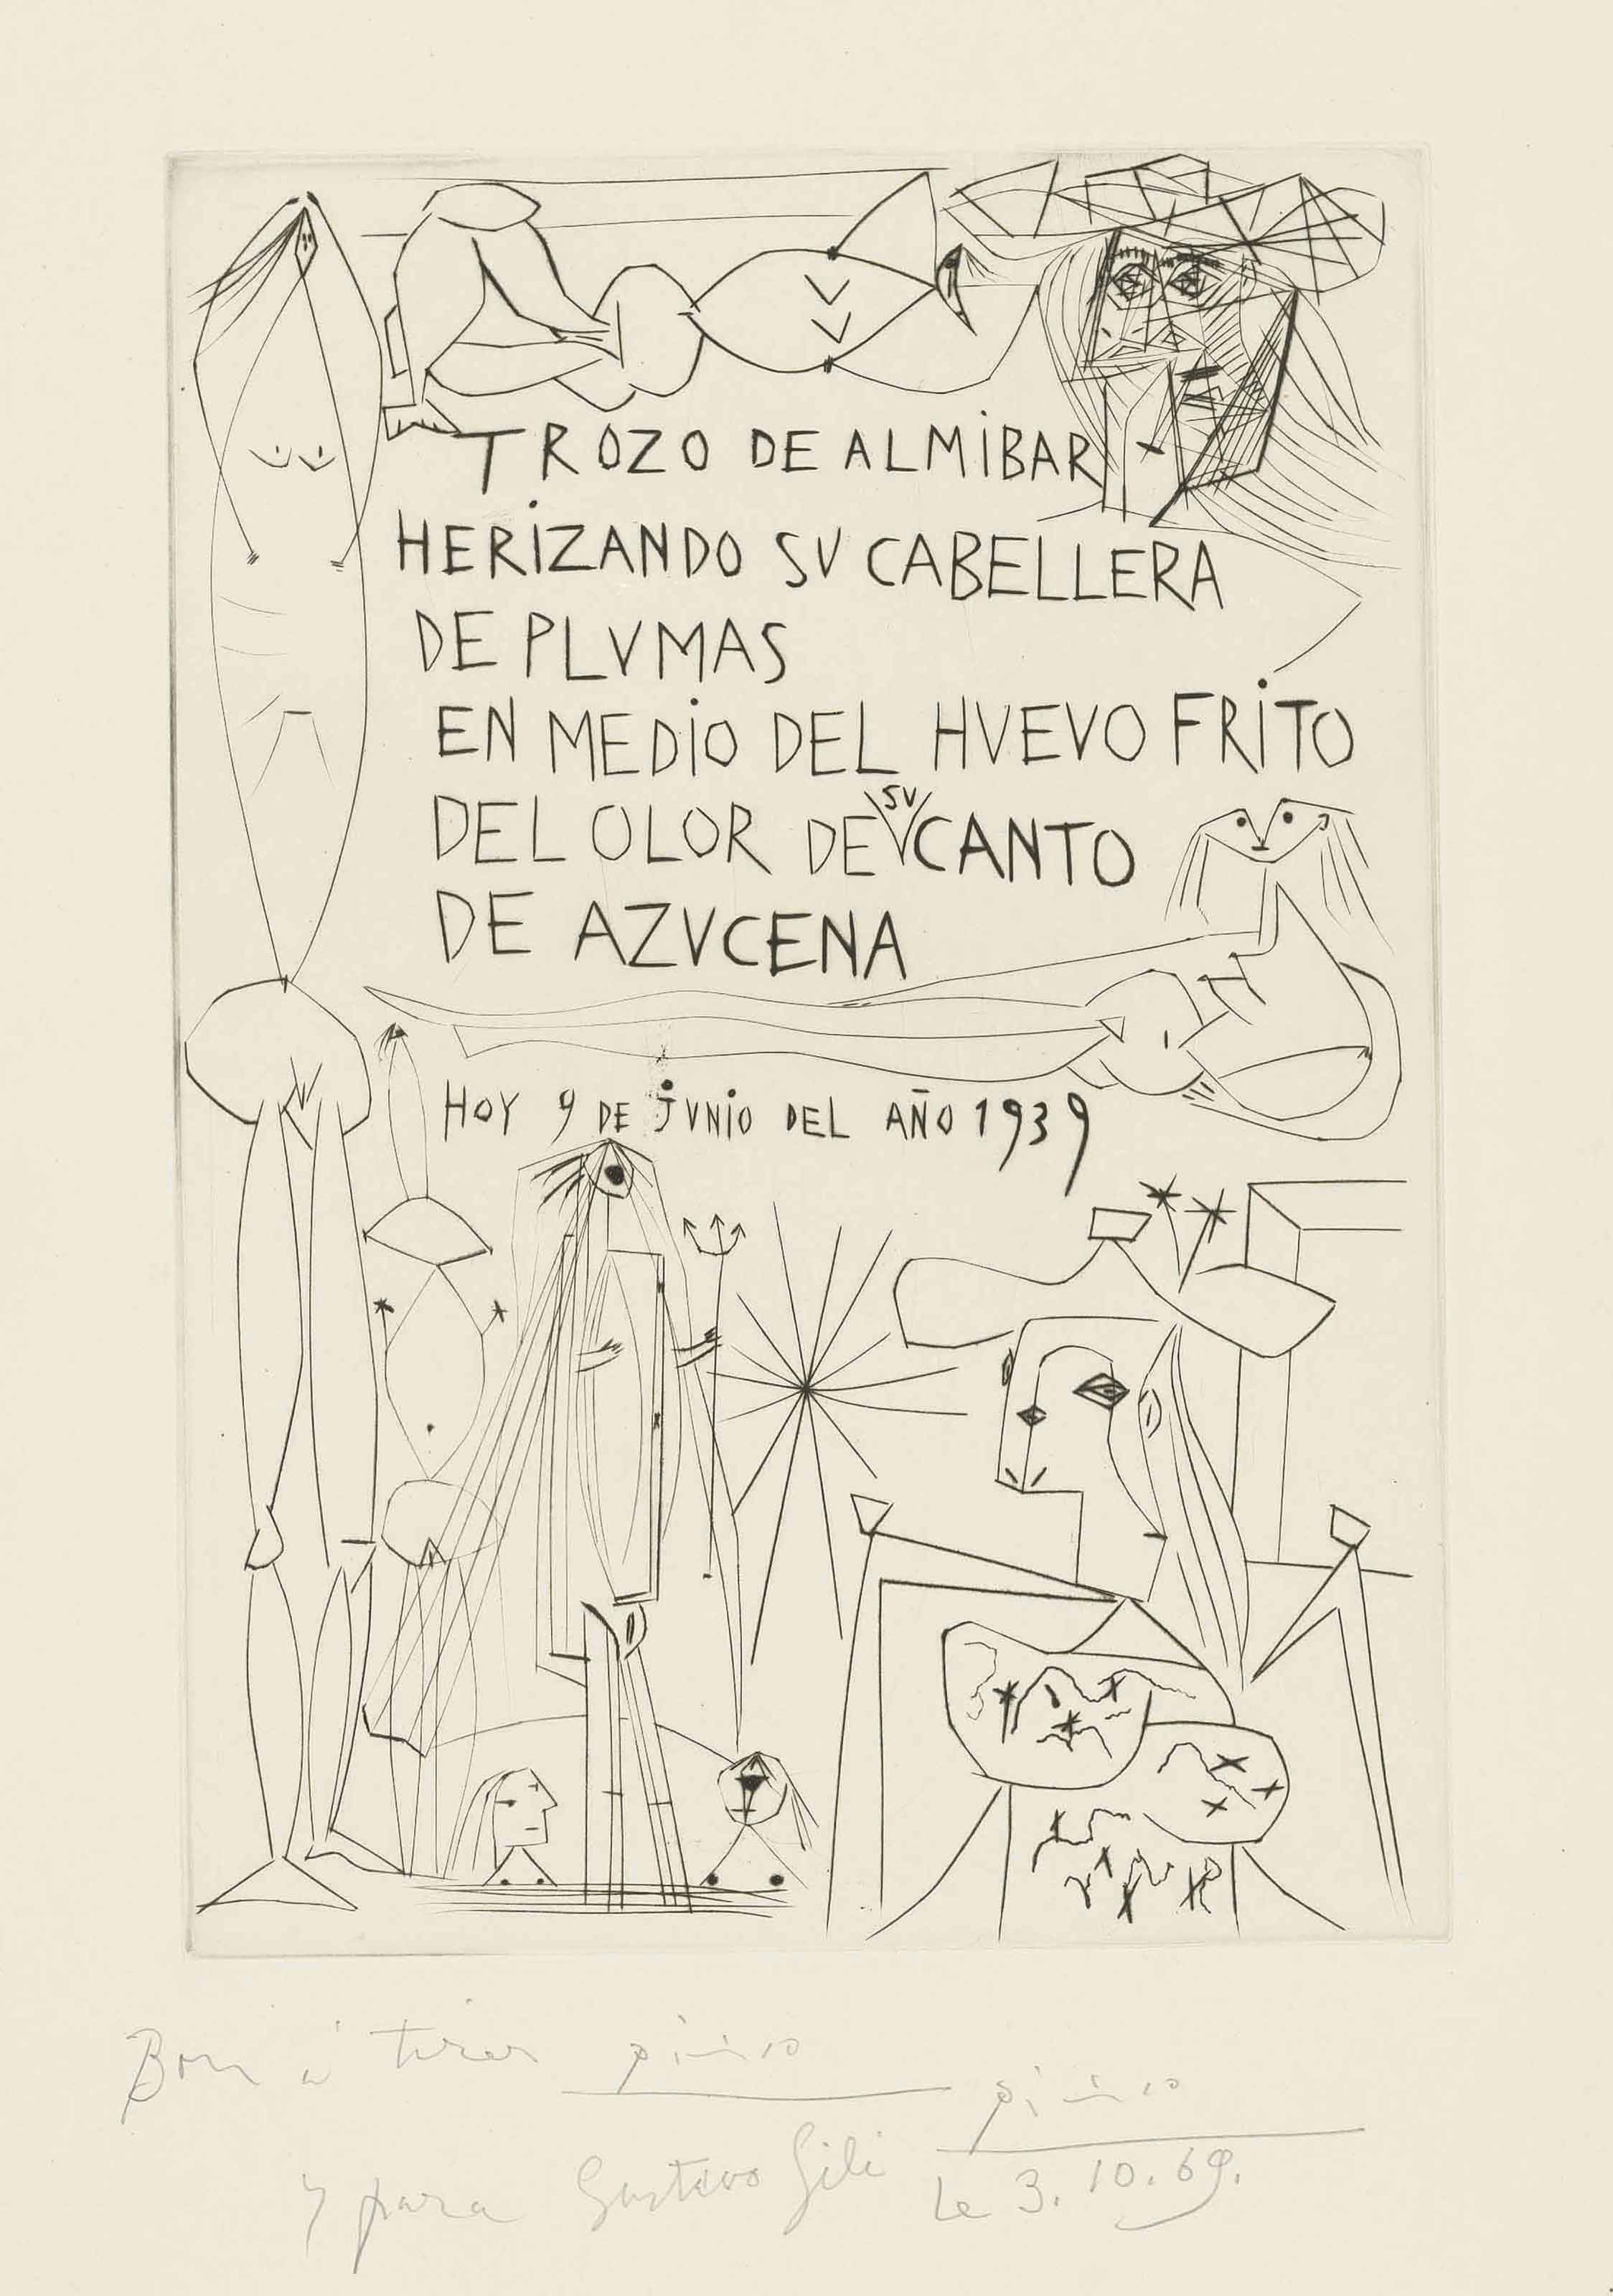 TROZO DE ALMiBAR
HERiZANDO SV CABELLERA
DE PLVMAS
EN MEDiO DEL HVEVO FRiTO
DEL OLOR DE SV CANTO
DE AZVCENA
HOY 9 DE jVNiO DEL AÑO 1939
Bon à tirer Picasso
Picasso
y para Gustavo Gili
Le 3.10.69.